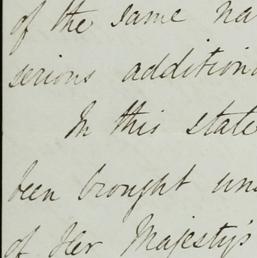 of the same na
serious addition
In this state
been brought un
of Her Majesty's